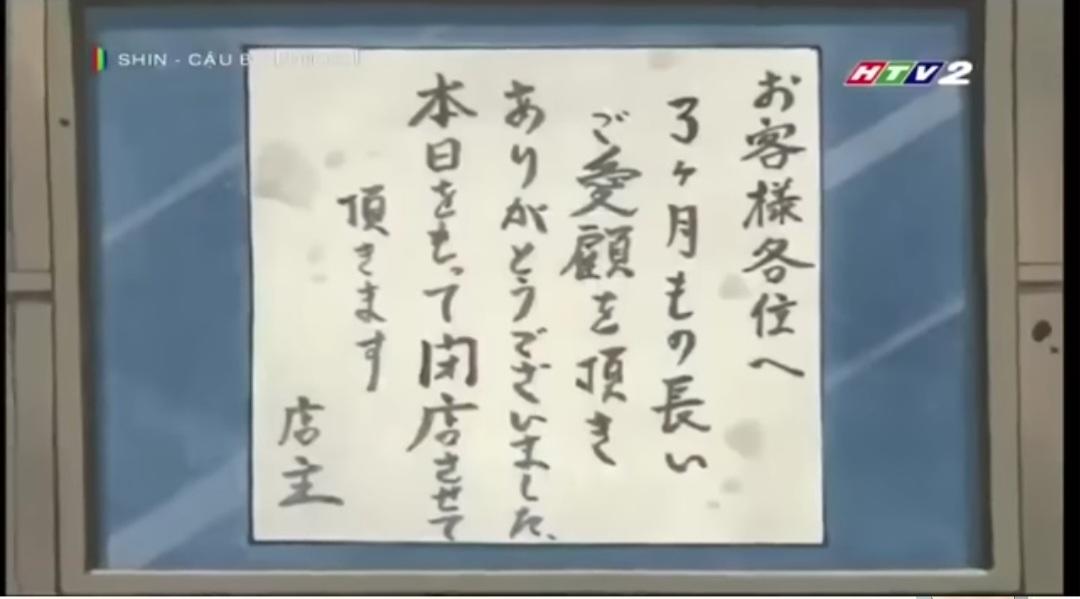 SHIN - CẬU B
HTV2
お客様各位へ
3ヶ月もの長い
ご愛顧を頂き
ありがとうございました、
本日をもって閉店させて
頂きます
店主